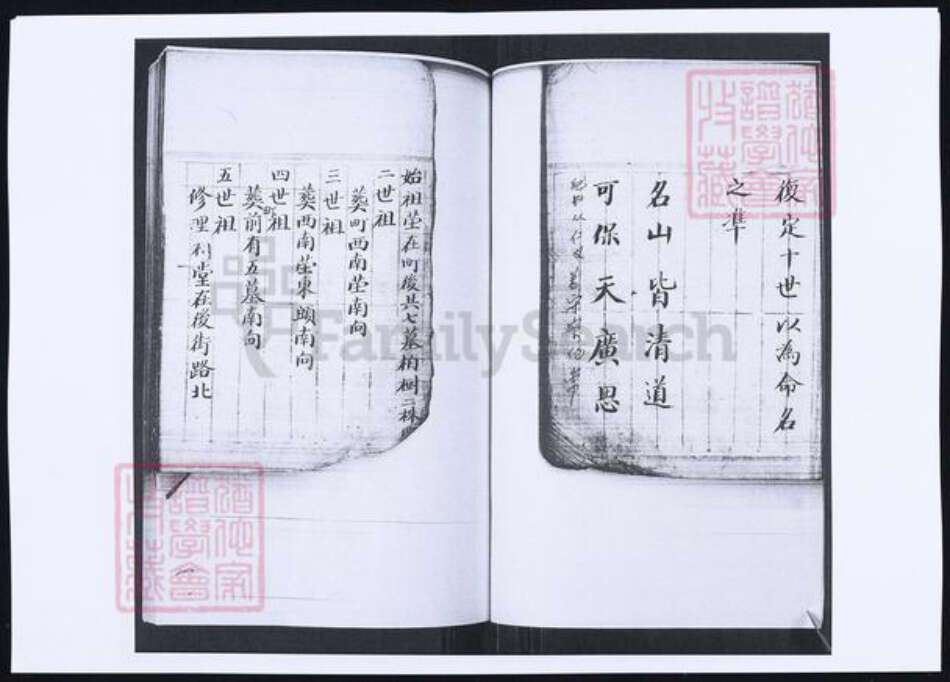 復定十世以為命名
之準
名山皆清道
可保天廣恩
始祖塋在町後共七墓柏樹二株
二世祖
葬町西南塋南向
三世祖
葬西南塋東頭南向
四世祖
葬前有五墓南向
五世祖
修理 堂在後街路北
FamilySearch
譜學會
收藏